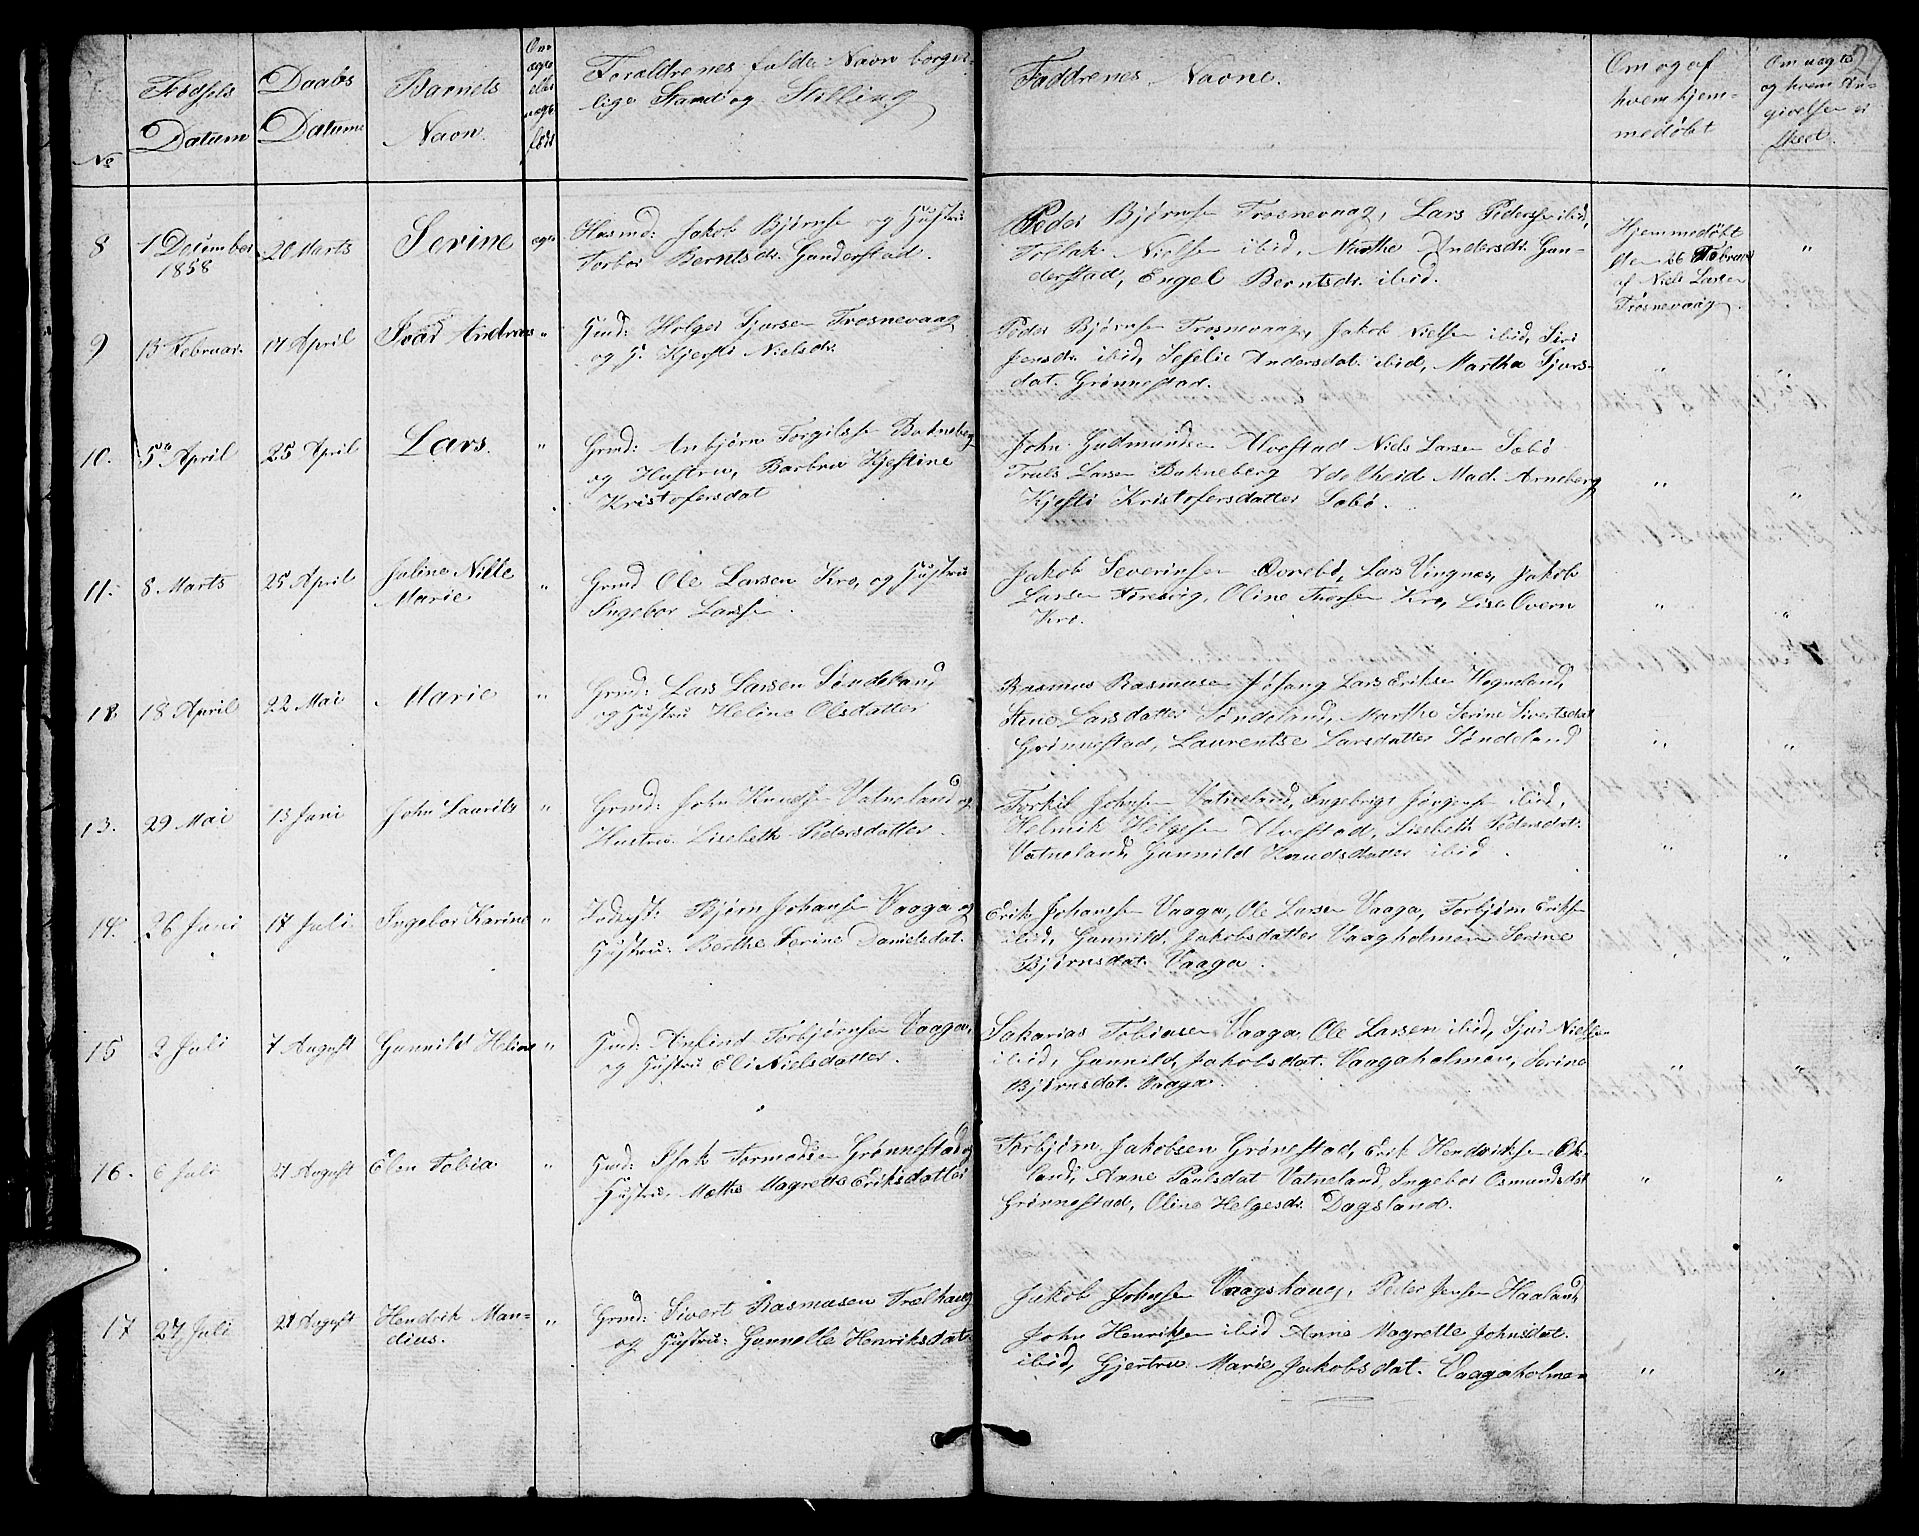 No
Fødsels
Datum
Daabs
Datum
Barnets
Navn.
Om
ægte
eller
uægte
født
Foraldrenes fulde Navn borger-
lige Stand og Stilling
Faddrenes Navne.
Om og af
hvem hjem-
medøbt
Om nogen
og hvem An-
givelsen er
skeet.
8
1 December
1858
20 Marts
Serine
ægte
Husmd: Jakob Bjørnsen og Hustru
Torbor Berntsdr. Gunderstad.
Peder Bjørnsen Trosnevaag, Lars Pedersen ibid,
Tollak Nielsen ibid, Marthe Andersdr. Gun-
derstad, Engel Berntsdr. ibid.
Hjemmedøbt
den 26 Februar
af Niels Larsen
Trosnevaag.
"
9
13 Februar.
17 April
Ivar Andreas
"
Gmd: Holger Sjursen Trosnevaag
og H. Kjersti Nielsdr.
Peder Bjørnsen Trosnevaag, Jakob Nielsen ibid, Siri
Jensdr. ibid, Seselie Andersdat. ibid, Martha Sjurs-
dat. Grønnestad.
"
"
10.
5 April
25 April
Lars.
"
Grmd: Anbjørn Torgilsen Bokneberg
og Hustru, Barbru Kjestine
Kristofersdat
John Gudmundsen Alvestad Niels Larsen Sæbø
Truls Larsen Bokneberg Adelheid Mad. Arneberg
Kjesti Kristofersdatter Sæbø.
"
"
11.
8 Marts
25 April
Jaline Nille
Marie
"
Grmd Ole Larsen Kro, og Hustru
Ingebor Larsen.
Jakob Severinsen Øvrebø, Lars Vingnes, Jakob
Larsen Arevig, Oline Thorsen Kro, Lise Overn
Kro.
"
"
12.
18 April
22 Mai
Marie
"
Grmd: Lars Larsen Søndeland
og Hustru Heline Olsdatter
Rasmus Rasmusen Jøsang Lars Eriksen Hogneland,
Stene Larsdatter Søndeland, Marthe Serine Sivertsdat
Grønnestad, Laurentse Larsdatter Søndeland
"
"
13.
29 Mai
13 Juni
John Laurits
"
Grmd: John Knudsen Vatneland og
Hustru Lisebeth Pedersdatter.
Torkil Johnsen Vatnelnd, Ingebrigt Jørgensen ibid,
Helmik Helgesen Alvestad, Lisebeth Pedersdat.
Vatneland, Gunnild Knudsdatter ibid.
"
"
14.
26 Juni
17 Juli.
Ingebor Karine
"
Inderst: Bjørn Johansen Vaaga og
Hustru: Berthe Serine Danielsdat.
Erik Johansen Vaaga, Ole Larsen Vaaga, Torbjørn Eriksen
ibid, Gunnild Jakobsdatter Vaagholmen Serine
Bjørnsdat. Vaaga.
"
"
15
2 Juli
7 August
Gunnild Heline
"
Gmd: Anfind Torbjørnsen Vaaga,
og Hustru Eli Nielsdatter.
Sakarias Tobiasen Vaaga, Ole Larsen ibid, Sjur Nielsen
ibid, Gunnild Jakobsdat. Vaagaholmen, Serine
Bjørnsdat. Vaaga.
"
"
16.
6 Juli
21 August
Elen Tobia
"
Gmd: Isak Tormodsen Grønnestad og
Hustru, Mæthe Magrette Eriksdatter
Torbjørn Jakobsen Grønestad, Erik Hendriksen Øk-
land, Anne Paulsdat Vatneland, Ingebor Osmundsdat
Grønnestad, Oline Helgesdr. Dagsland.
"
"
17
27 Juli
21 August
Hendrik Man-
dius.
"
Grmd: Sivert Rasmusen Trælhaug
og Hustru: Gunnelle Henriksdat.
Jakob Johnsen Vaagshaug, Peder Jensen Haaland,
John Henriksen ibid Anne Magrette Johnsdat.
ibid, Gjertru Marie Jakobsdat. Vaagaholmen
"
"